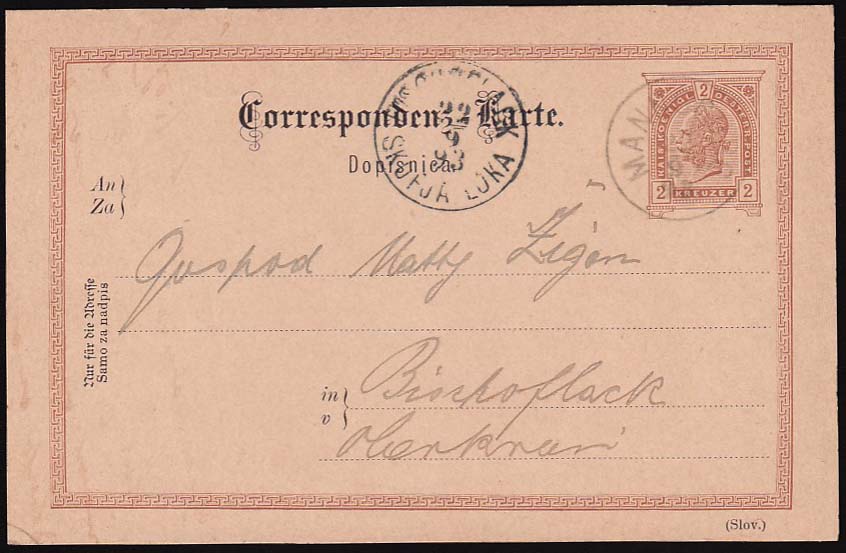 Correspondenz-Karte.
Dopisnica.
BISCHOFLACK
22
9
93
ŠKOFJA LOKA
KAIS. KOENIGL. OESTERR. POST.
2
2 KREUZER 2
MAN
An
Za
Gospod Matty Zigon
Nur für die Adresse
Samo za nadpis
in
v
Bischoflack
Oberkrain
(Slov.)